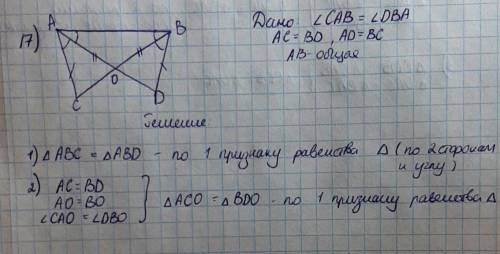 17)
A B
O
C D
Дано ∠CAB = ∠DBA
AC = BD, AD = BC
AB - общая
Решение
1) △ABC = △ABD - по 1 признаку равенства △ (по 2 сторонам и углу)
2) AC = BD
AO = BO
∠CAO = ∠DBO
} △ACO = △BDO - по 1 признаку равенства △